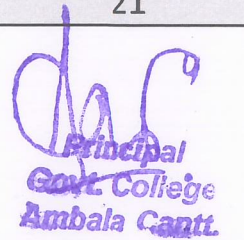 21
Principal
Govt. College
Ambala Cantt.